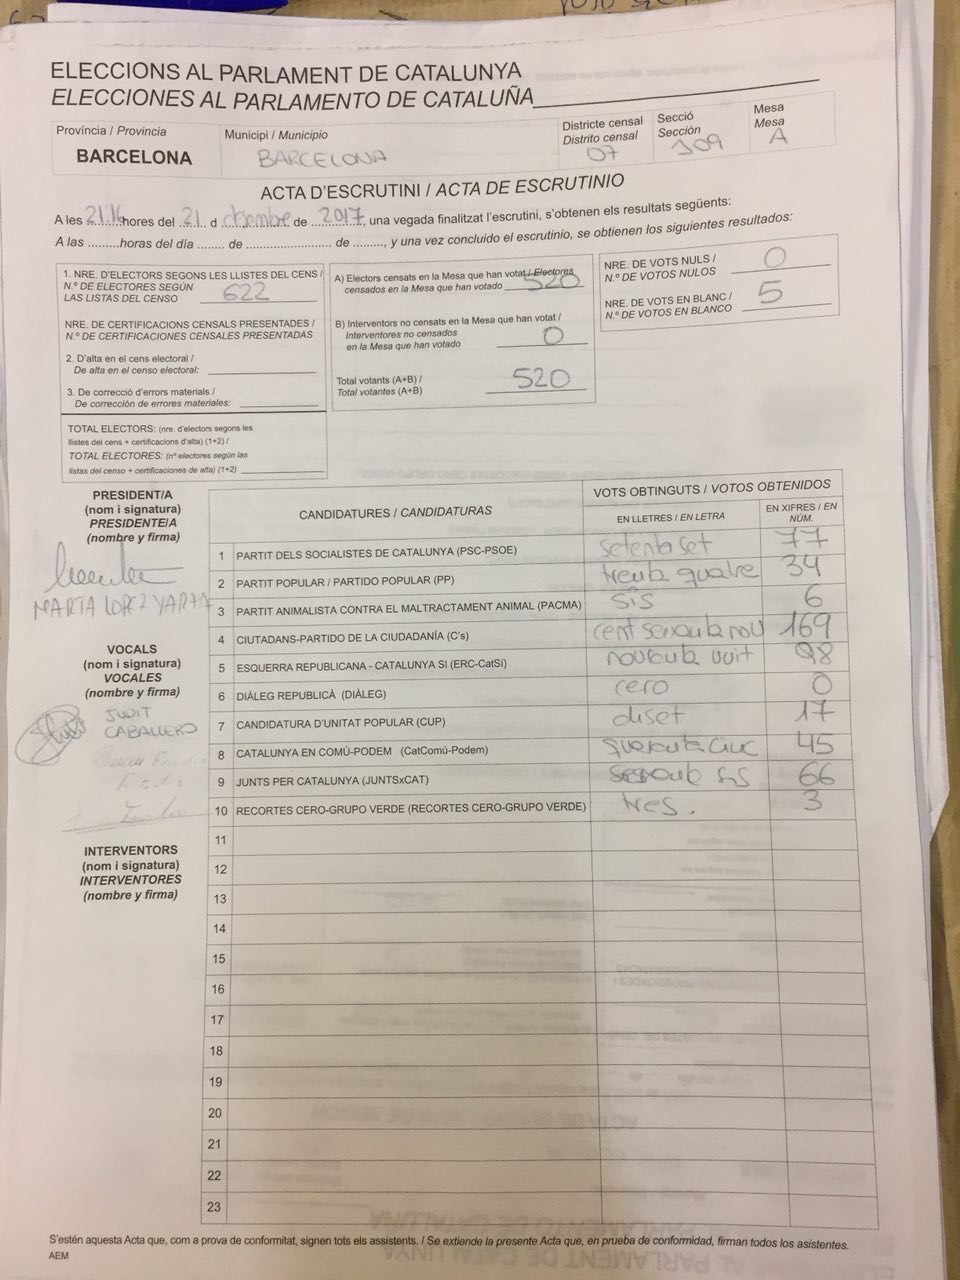 ELECCIONS AL PARLAMENT DE CATALUNYA
ELECCIONES AL PARLAMENTO DE CATALUÑA
Província / Provincia
BARCELONA
Municipi / Municipio
BARCELONA
Districte censal
Distrito censal
07
Secció
Sección
109
Mesa
Mesa
A
ACTA D'ESCRUTINI / ACTA DE ESCRUTINIO
A les 21.16 hores del 21 d desembre de 2017, una vegada finalitzat l'escrutini, s'obtenen els resultats següents:
A las .........horas del día ........ de .......................... de ........., y una vez concluido el escrutinio, se obtienen los siguientes resultados:
1. NRE. D'ELECTORS SEGONS LES LLISTES DEL CENS /
N.º DE ELECTORES SEGÚN
LAS LISTAS DEL CENSO 622
NRE. DE CERTIFICACIONS CENSALS PRESENTADES /
N.º DE CERTIFICACIONES CENSALES PRESENTADAS
2. D'alta en el cens electoral /
De alta en el censo electoral:
3. De correcció d'errors materials /
De corrección de errores materiales:
TOTAL ELECTORS: (nre. d'electors segons les
llistes del cens + certificacions d'alta) (1+2) /
TOTAL ELECTORES: (nº electores según las
listas del censo + certificaciones de alta) (1+2)
A) Electors censats en la Mesa que han votat / Electores
censados en la Mesa que han votado 520
B) Interventors no censats en la Mesa que han votat /
Interventores no censados
en la Mesa que han votado 0
Total votants (A+B) /
Total votantes (A+B) 520
NRE. DE VOTS NULS /
N.º DE VOTOS NULOS 0
NRE. DE VOTS EN BLANC /
N.º DE VOTOS EN BLANCO 5
PRESIDENT/A
(nom i signatura)
PRESIDENTE/A
(nombre y firma)
MARTA LOPEZ YARTA
VOCALS
(nom i signatura)
VOCALES
(nombre y firma)
JUDIT
CABALLERO
INTERVENTORS
(nom i signatura)
INTERVENTORES
(nombre y firma)
CANDIDATURES / CANDIDATURAS
VOTS OBTINGUTS / VOTOS OBTENIDOS
EN LLETRES / EN LETRA
EN XIFRES / EN
NÚM.
1 PARTIT DELS SOCIALISTES DE CATALUNYA (PSC-PSOE) setenta set 77
2 PARTIT POPULAR / PARTIDO POPULAR (PP) trenta quatre 34
3 PARTIT ANIMALISTA CONTRA EL MALTRACTAMENT ANIMAL (PACMA) sis 6
4 CIUTADANS-PARTIDO DE LA CIUDADANÍA (C's) cent seixanta nou 169
5 ESQUERRA REPUBLICANA - CATALUNYA SI (ERC-CatSí) noucuta vuit 98
6 DIÀLEG REPUBLICÀ (DIÀLEG) cero 0
7 CANDIDATURA D'UNITAT POPULAR (CUP) diset 17
8 CATALUNYA EN COMÚ-PODEM (CatComú-Podem) 45
9 JUNTS PER CATALUNYA (JUNTSxCAT) sis 66
10 RECORTES CERO-GRUPO VERDE (RECORTES CERO-GRUPO VERDE) tres. 3
11
12
13
14
15
16
17
18
19
20
21
22
23
S'estén aquesta Acta que, com a prova de conformitat, signen tots els assistents. / Se extiende la presente Acta que, en prueba de conformidad, firman todos los asistentes.
AEM